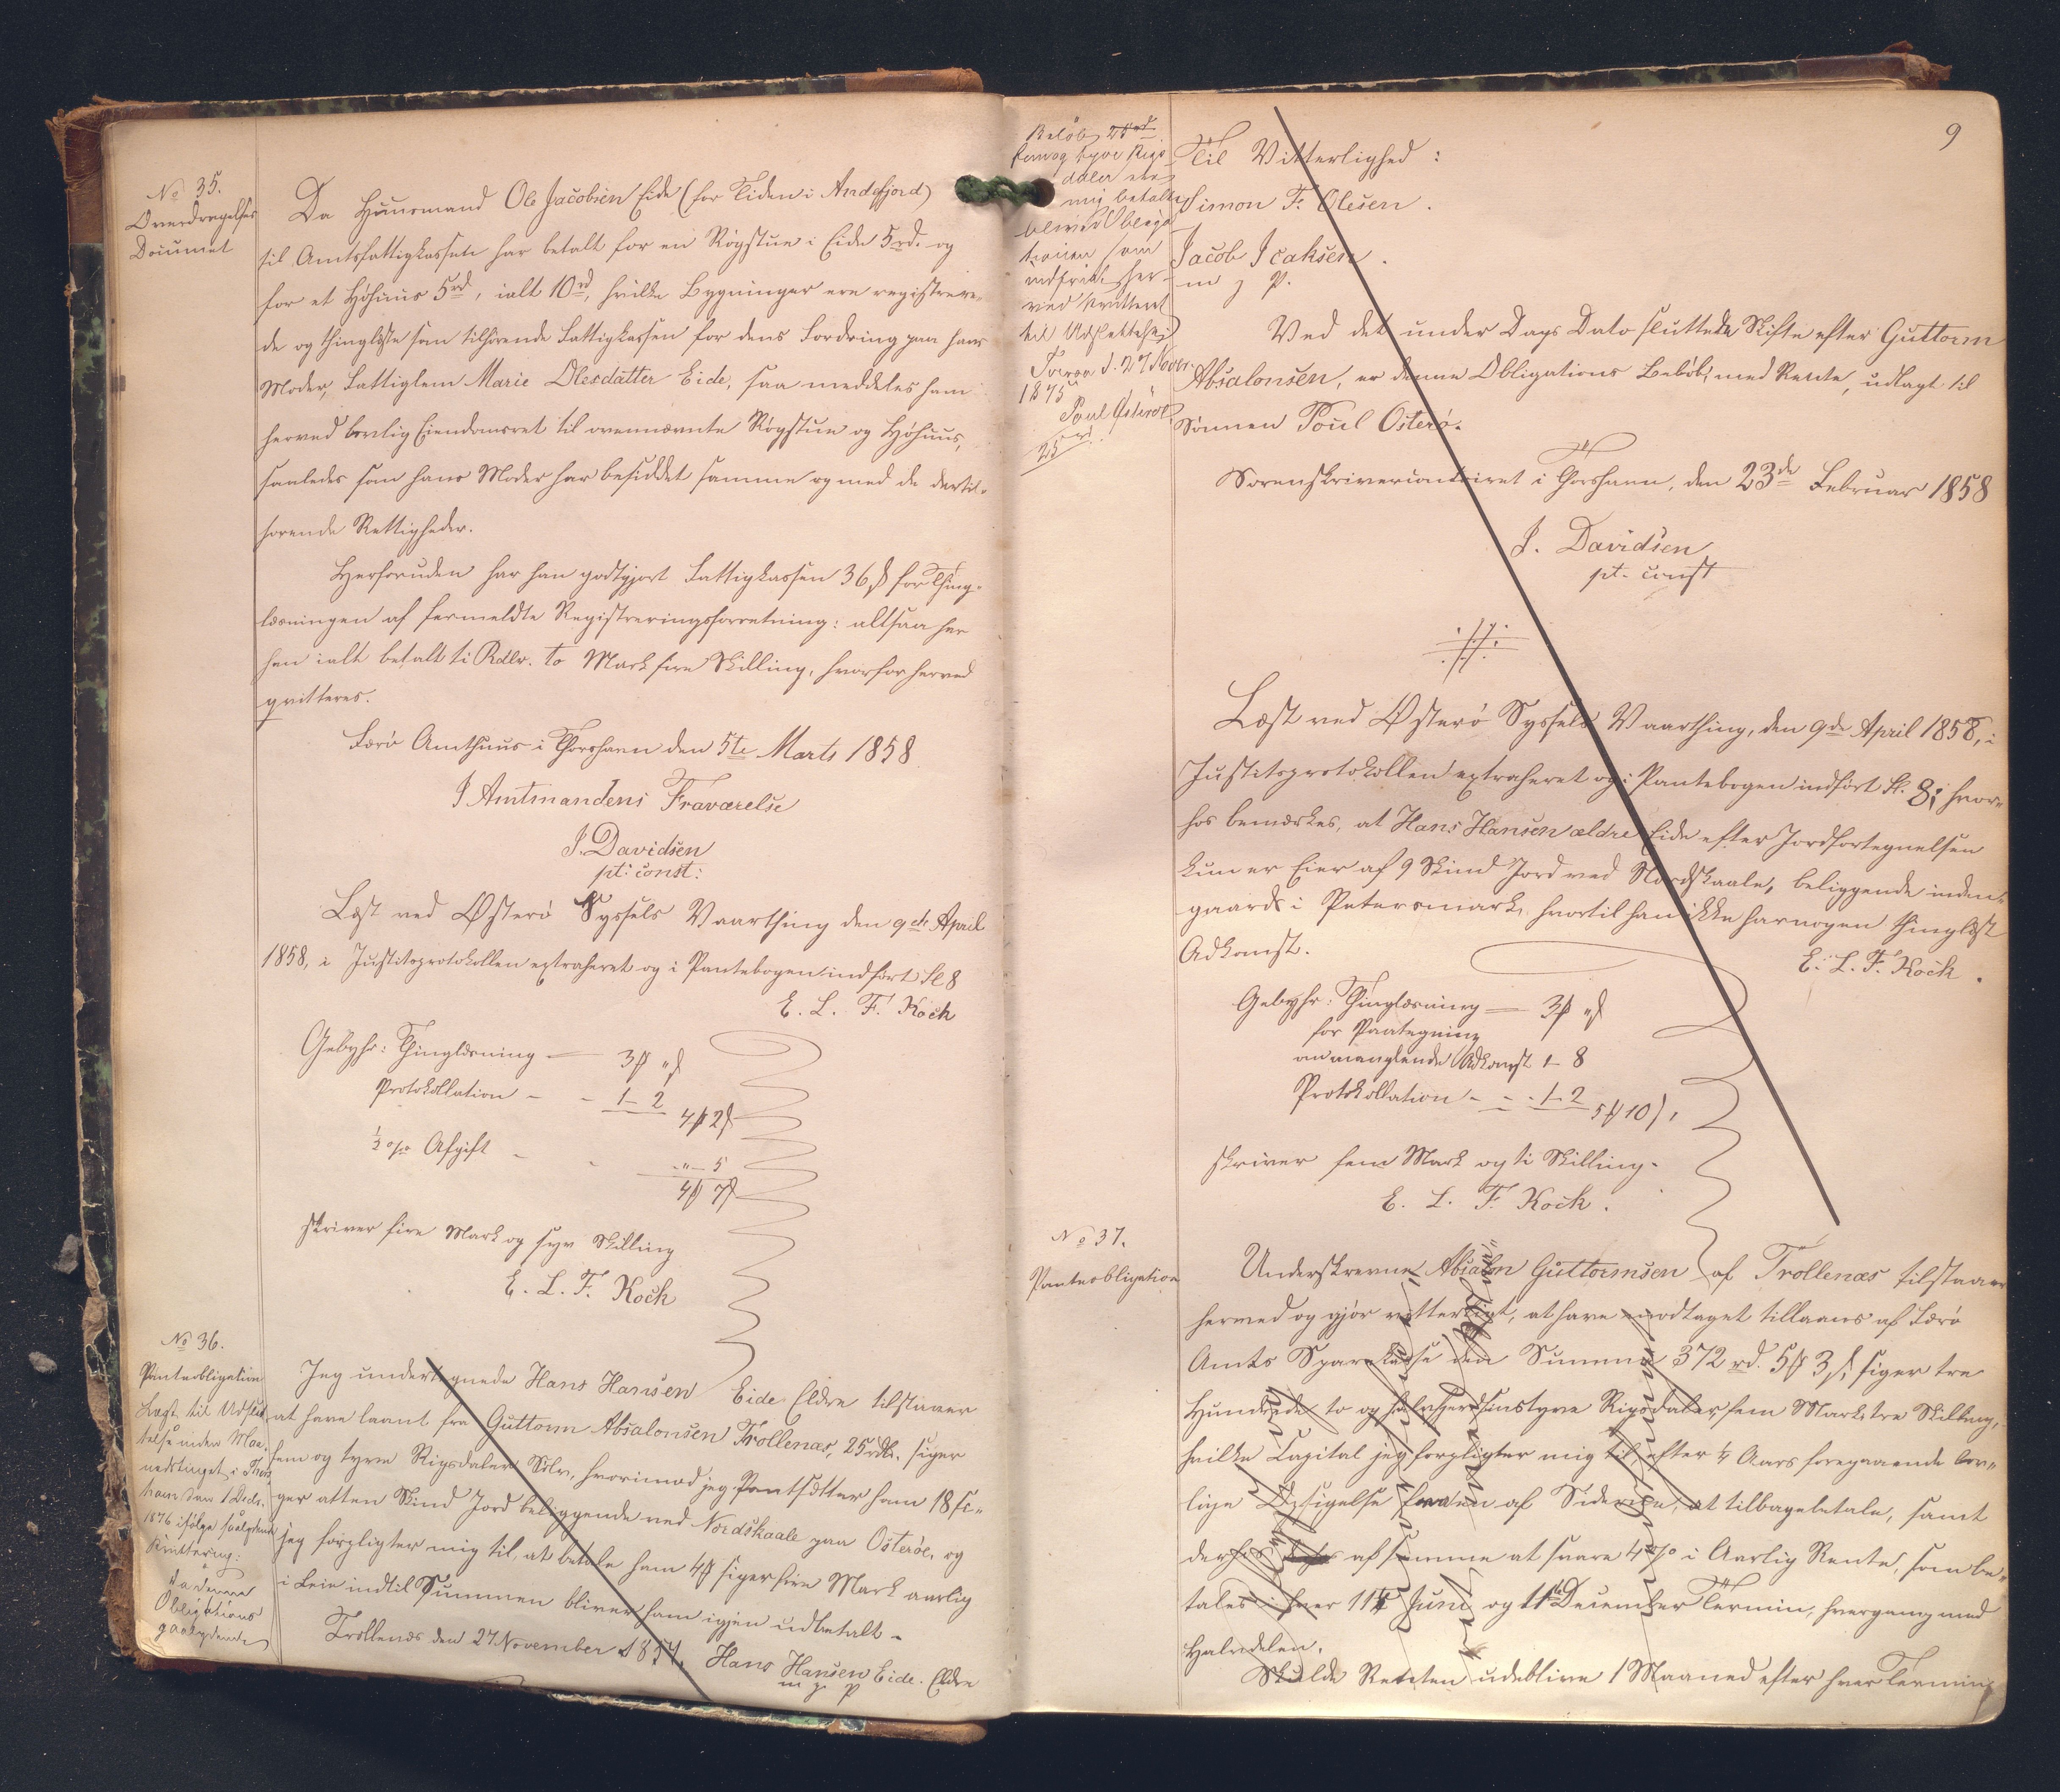 No 35.
Overdragelses
Document
Da Huusmand Ole Jacobsen Eide (for Tiden i Andefjord)
til Amtsfattigkassen har betalt for en Røgstue i Eide 5rd. og
for et Høhuus 5rd, ialt 10rd, hvilke Bygninger ere registrere-
de og thinglæste som tilhørende Fattigkassen for dens Fordring paa hans
Moder, Fattiglem Marie Olesdatter Eide, saa meddeles ham
herved lovlig Eiendomsret til ovennævnte Røgstue og Høhuus,
saaledes som hans Moder har besiddet samme og med de dertil-
hørende Rettigheder.
Herforuden har han godtgjort Fattigkassen 36 ß for Thing-
læsningen af formeldte Registreringsforretning: altsaa her
hen ialt betalt ti Rdlr. to Mark fire Skilling, hvorfor herved
qvitteres.
Færø Amthuus i Thorshavn den 5te Marts 1858
I Amtmandens Fraværelse
J. Davidsen
pt: const:
Læst ved Østerø Syssels Vaarthing den 9de April
1858, i Justitsprotokollen extraheret og i Pantebogen indført Fl 8
E. L. F. Koch
Gebyhr: Thinglæsning — 3 ₻ " ß
Protokollation - - 1 - 2
4 ₻ 2 ß
½ o/o Afgift - - - " - 5
4 ₻ 7 ß
skriver fire Mark og syv Skilling
E. L. F. Koch
No 36.
Panteobligation
Lagt til Udslet
telse inden Maa-
nedstinget i Thors
havn den 1 Decbr.
1876 ifølge saalydende
Kvittering:
Da denne
Obligations
paalydende
Jeg undertegnede Hans Hansen Eide Eldre tilstaaer
at have laant fra Guttorm Absalonsen Trollenæs, 25rdlr. siger
fem og tyve Rigsdaler Sølv, hvorimod jeg Pantsætter ham 18 si-
ger atten Skind Jord beliggende ved Nordskaale paa Osterøe, og
jeg forpligter mig til, at betale ham 4 ₻ siger fire Mark aarlig
i Leie indtil Summen bliver ham igjen udbetalt -
Trollenæs den 27 November 1854. Hans Hansen Eide. Eldre
m j P
9
Beløb 25rd
fem og tyve Rigs
daler er
mig betalt
bliver Obliga
tionen som
indfriet her-
ved kvitteret
til Udslettelse
d. 27 Novbr.
1875
Poul Østerø
25 rd.
Til Vitterlighed:
Simon F. Olesen.
Jacob Isaksen.
m j P.
Ved det under Dags Dato sluttede Skifte efter Guttorm
Absalonsen, er denne Obligations Beløb, med Rente, udlagt til
Sønnen Poul Osterø.
Sorenskrivercontoiret i Thorshavn, den 23de Februar 1858
J. Davidsen
pt. const
Læst ved Østerø Syssels Vaarthing, den 9de April 1858, i
Justitsprotokollen extraheret og i Pantebogen indført Fl. 8; hvor-
hos bemærkes, at Hans Hansen ældre Eide efter Jordfortegnelsen
kun er Eier af 9 Skind Jord ved Nordskaale, beliggende inden-
gaards i Petersmark, hvortil han ikke har nogen thinglæst
Adkomst.
E. L. F. Koch.
Gebyhr: Thinglæsning — 3 ₻ " ß
for Paategning
om manglende Adkomst 1 - 8
Protokollation - - - 1 - 2
5 ₻ 10 ß,
skriver fem Mark og ti Skilling.
E. L. F. Koch.
No 37.
Panteobligation
Underskrevne Absalon Guttormsen af Trollenæs tilstaaer
herved og gjør vitterligt, at have modtaget tillaans af Færø
Amts Sparekasse den Summa 372 rd. 5 ₻ 3 ß, siger tre
Hundrede to og halvfjerdsinstyve Rigsdaler, fem Mark, tre Skilling,
hvilke Capital jeg forpligter mig til, efter ¼ Aars foregaaende lov-
lige Opsigelse fra en af Siderne, at tilbagebetale, samt
derhos af samme at svare 4 o/o i Aarlig Rente, som be-
tales i hver 11te Juni og 11te December Termin, hvergang med
Halvdelen.
Skulde Renten udeblive 1 Maaned efter hver Termin